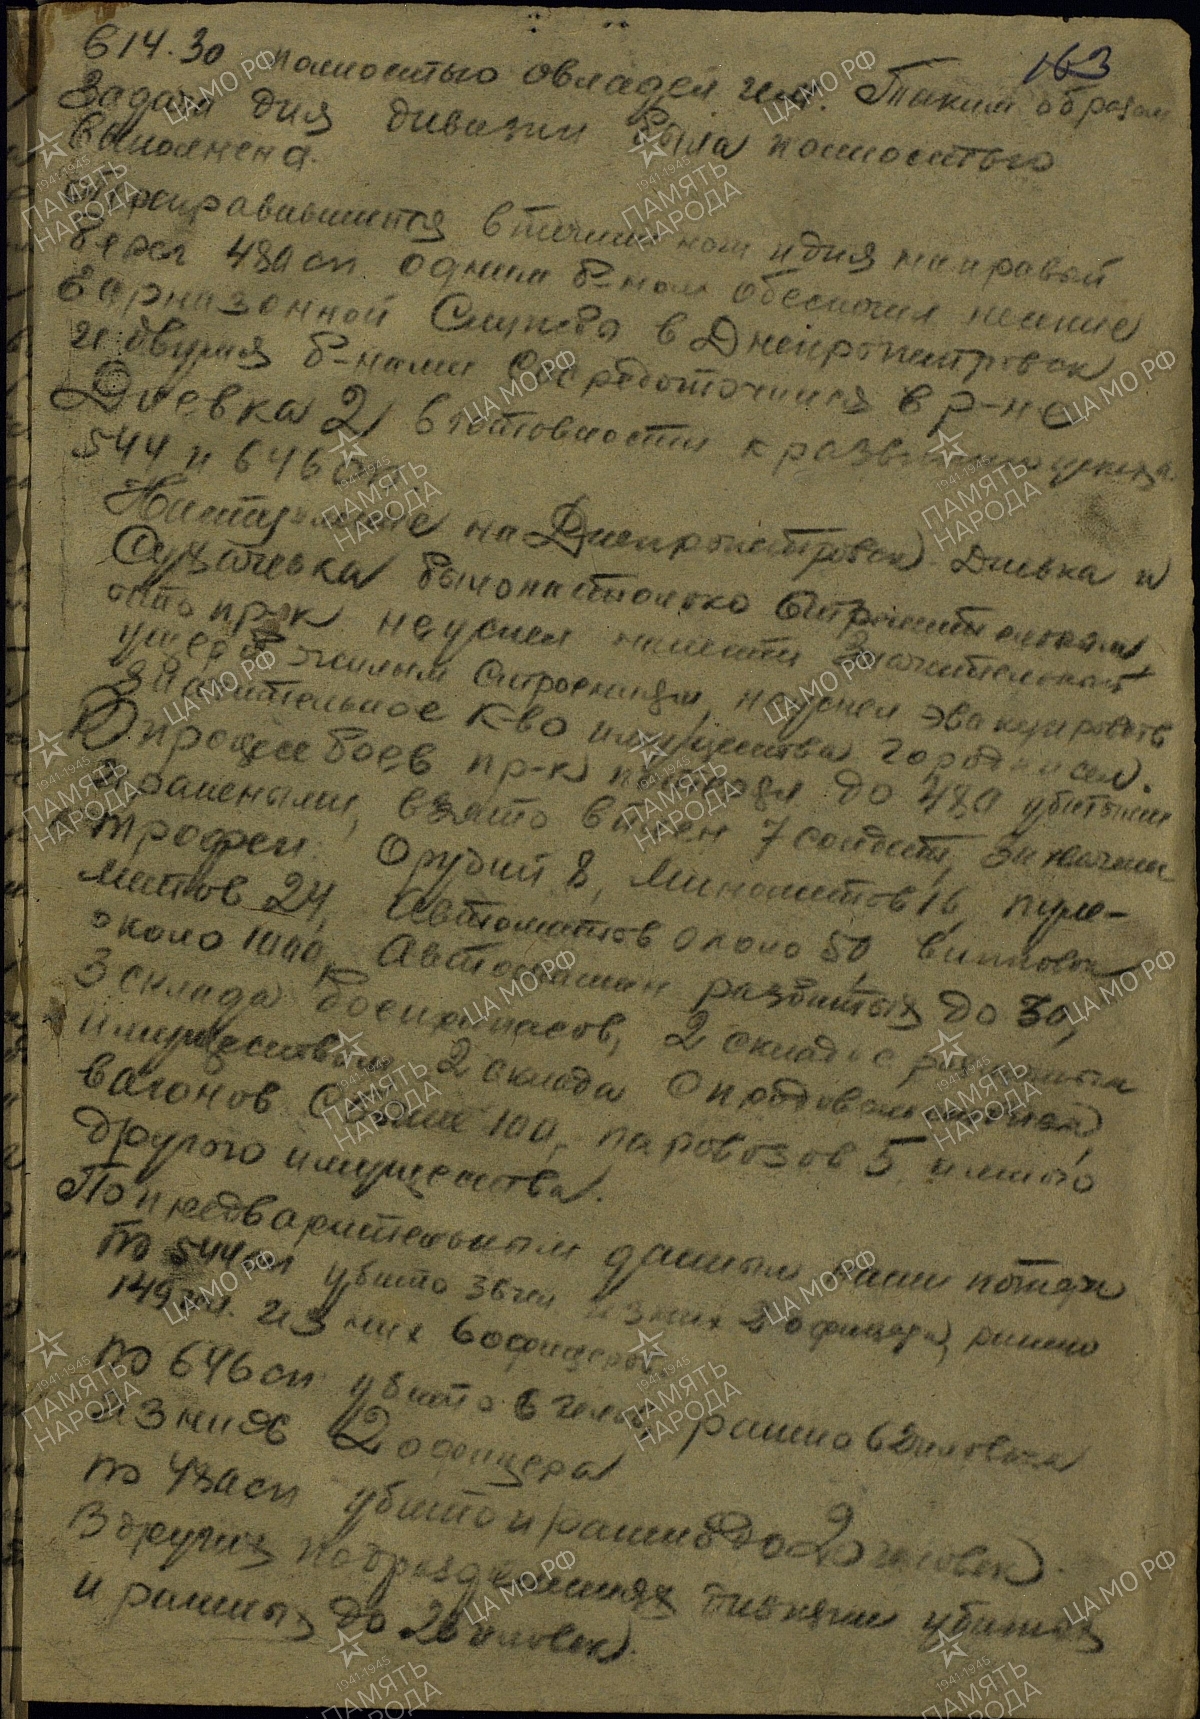 163
в 14.30 полностью овладел ею. Таким образом
задача дня дивизии была полностью
выполнена.
Переправившийся в течении ночи и дня на правый
берег 430 сп одним б-ном обеспечил несение
гарнизонной службы в Днепропетровск
и двумя б-нами сосредоточился в р-не
Диевка 2 в готовности к развитию успеха
544 и 646 сп.
Наступление на Днепропетровск Диевка и
Сухачевка было настолько стремительным
что пр-к не успел нанести значительный
ущерб жилым строениям, не успел эвакуировать
значительное к-во имущества города и сел.
В процессе боев пр-к потерял до 430 убитыми
и ранеными, взято в плен 7 солдат, захвачены
трофеи: Орудий 8, минометов 16, пуле-
метов 24, автоматов около 50, винтовок
около 1000, Автомашин разбитых до 30,
3 склада боеприпасов, 2 склада с различным
имуществом, 2 склада с продовольствием,
вагонов свыше 100, паровозов 5 и много
другого имущества.
По предварительным данным наши потери
по 544 сп убито 36 чел из них 2 офицера, ранено
149 чел. из них 6 офицеров
по 646 сп убито 6 человек, ранено 62 человека
из них 2 офицера
по 430 сп убито и ранено до 20 человек.
В других подразделениях дивизии убитых
и раненых до 20 человек.
ЦА МО РФ
ПАМЯТЬ НАРОДА
1941-1945